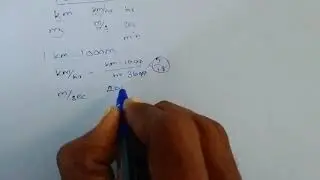 km km/hr hr
m m/s sec
min
1 km 1000m
km/hr = km 1000 / hr 3600 = 5/18
m/sec